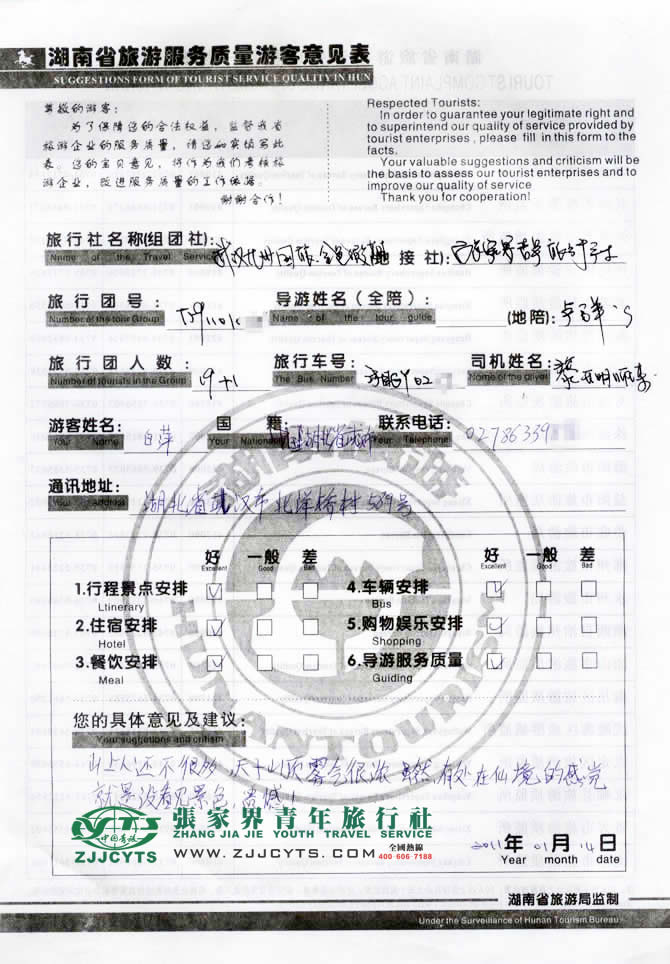 湖南省旅游服务质量游客意见表
SUGGESTIONS FORM OF TOURIST SERVICE QUALITY IN HUN
尊敬的游客：
为了保障您的合法权益，监督我省
旅游企业的服务质量，请您如实填写此
表。您的宝贝意见，将作为我们考核旅
游企业，改进服务质量的工作依据。
谢谢合作！
Respected Tourists:
In order to guarantee your legitimate right and
to superintend our quality of service provided by
tourist enterprises , please fill in this form to the
facts.
Your valuable suggestions and criticism will be
the basis to assess our tourist enterprises and to
improve our quality of service
Thank you for cooperation!
旅行社名称(组团社): 地接社):
Name of the Travel Service
旅行团号： 导游姓名（全陪）： (地陪):
Number of the tour Group Name of the tour guide
旅行团人数： 19+1 旅行车号： 司机姓名：
Number of tourists in the Group The Bus Number Name of the driver
游客姓名： 白萍 国籍： 联系电话： 02786339
Your Name Your Nationality Your Telephone
通讯地址： 湖北省武汉市北洋桥村589号
Your Address
好 一般 差 好 一般 差
Excellent Good Bad Excellent Good Bad
1.行程景点安排 4.车辆安排
Ltinerary Bus
2.住宿安排 5.购物娱乐安排
Hotel Shopping
3.餐饮安排 6.导游服务质量
Meal Guiding
HUNAN TOURISM
您的具体意见及建议：
Your suggetions and critism
山上人还不很多，天子山顶雾气很浓 虽然有处在仙境的感觉
就是没看见景色，遗憾！
中国青旅
ZJJCYTS
張家界青年旅行社
ZHANG JIA JIE YOUTH TRAVEL SERVICE
WWW.ZJJCYTS.COM 全國熱線 400-606-7188
2011年 01月 14日
Year month date
湖南省旅游局监制
Under the Surveillance of Hunan Tourism Bureau